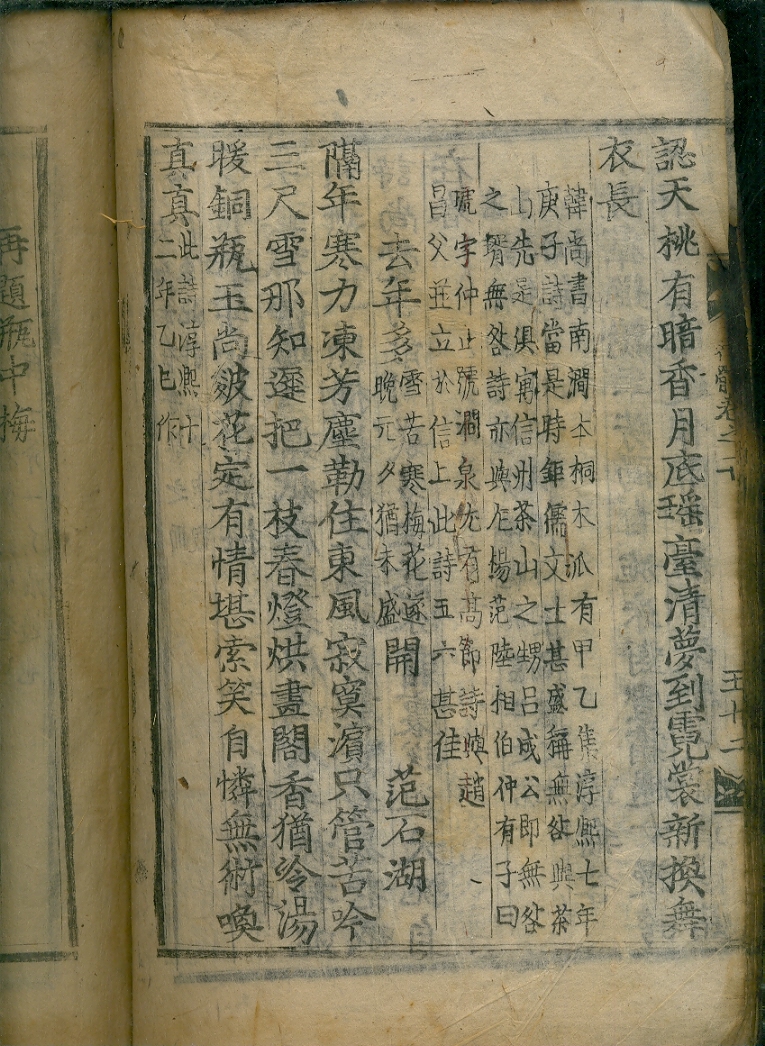 認天桃有暗香月底瑶臺清夢到霓裳新換舞
衣長
韓尚書南澗本桐木派有甲乙集淳熙七年
庚子詩當是時鉅儒文士甚盛稱無咎與茶
山先是俱寓信州茶山之甥吕成公即無咎
之壻無咎詩亦與尤楊范陸相伯仲有子曰
淲字仲止號澗泉尤有髙節詩與趙
昌父並立於信上此詩五六甚佳
去年多雪苦寒梅花遂
晩元夕猶未盛開 范石湖
隔年寒力凍芳塵勒住東風寂寞濵只管苦吟
三尺雪那知遲把一枝春燈烘畫閣香猶冷湯
暖銅瓶玉尚皴花定有情堪索笑自憐無術喚
真真
此詩淳熙十
二年乙巳作
卷之二十
五十二
再題瓶中梅